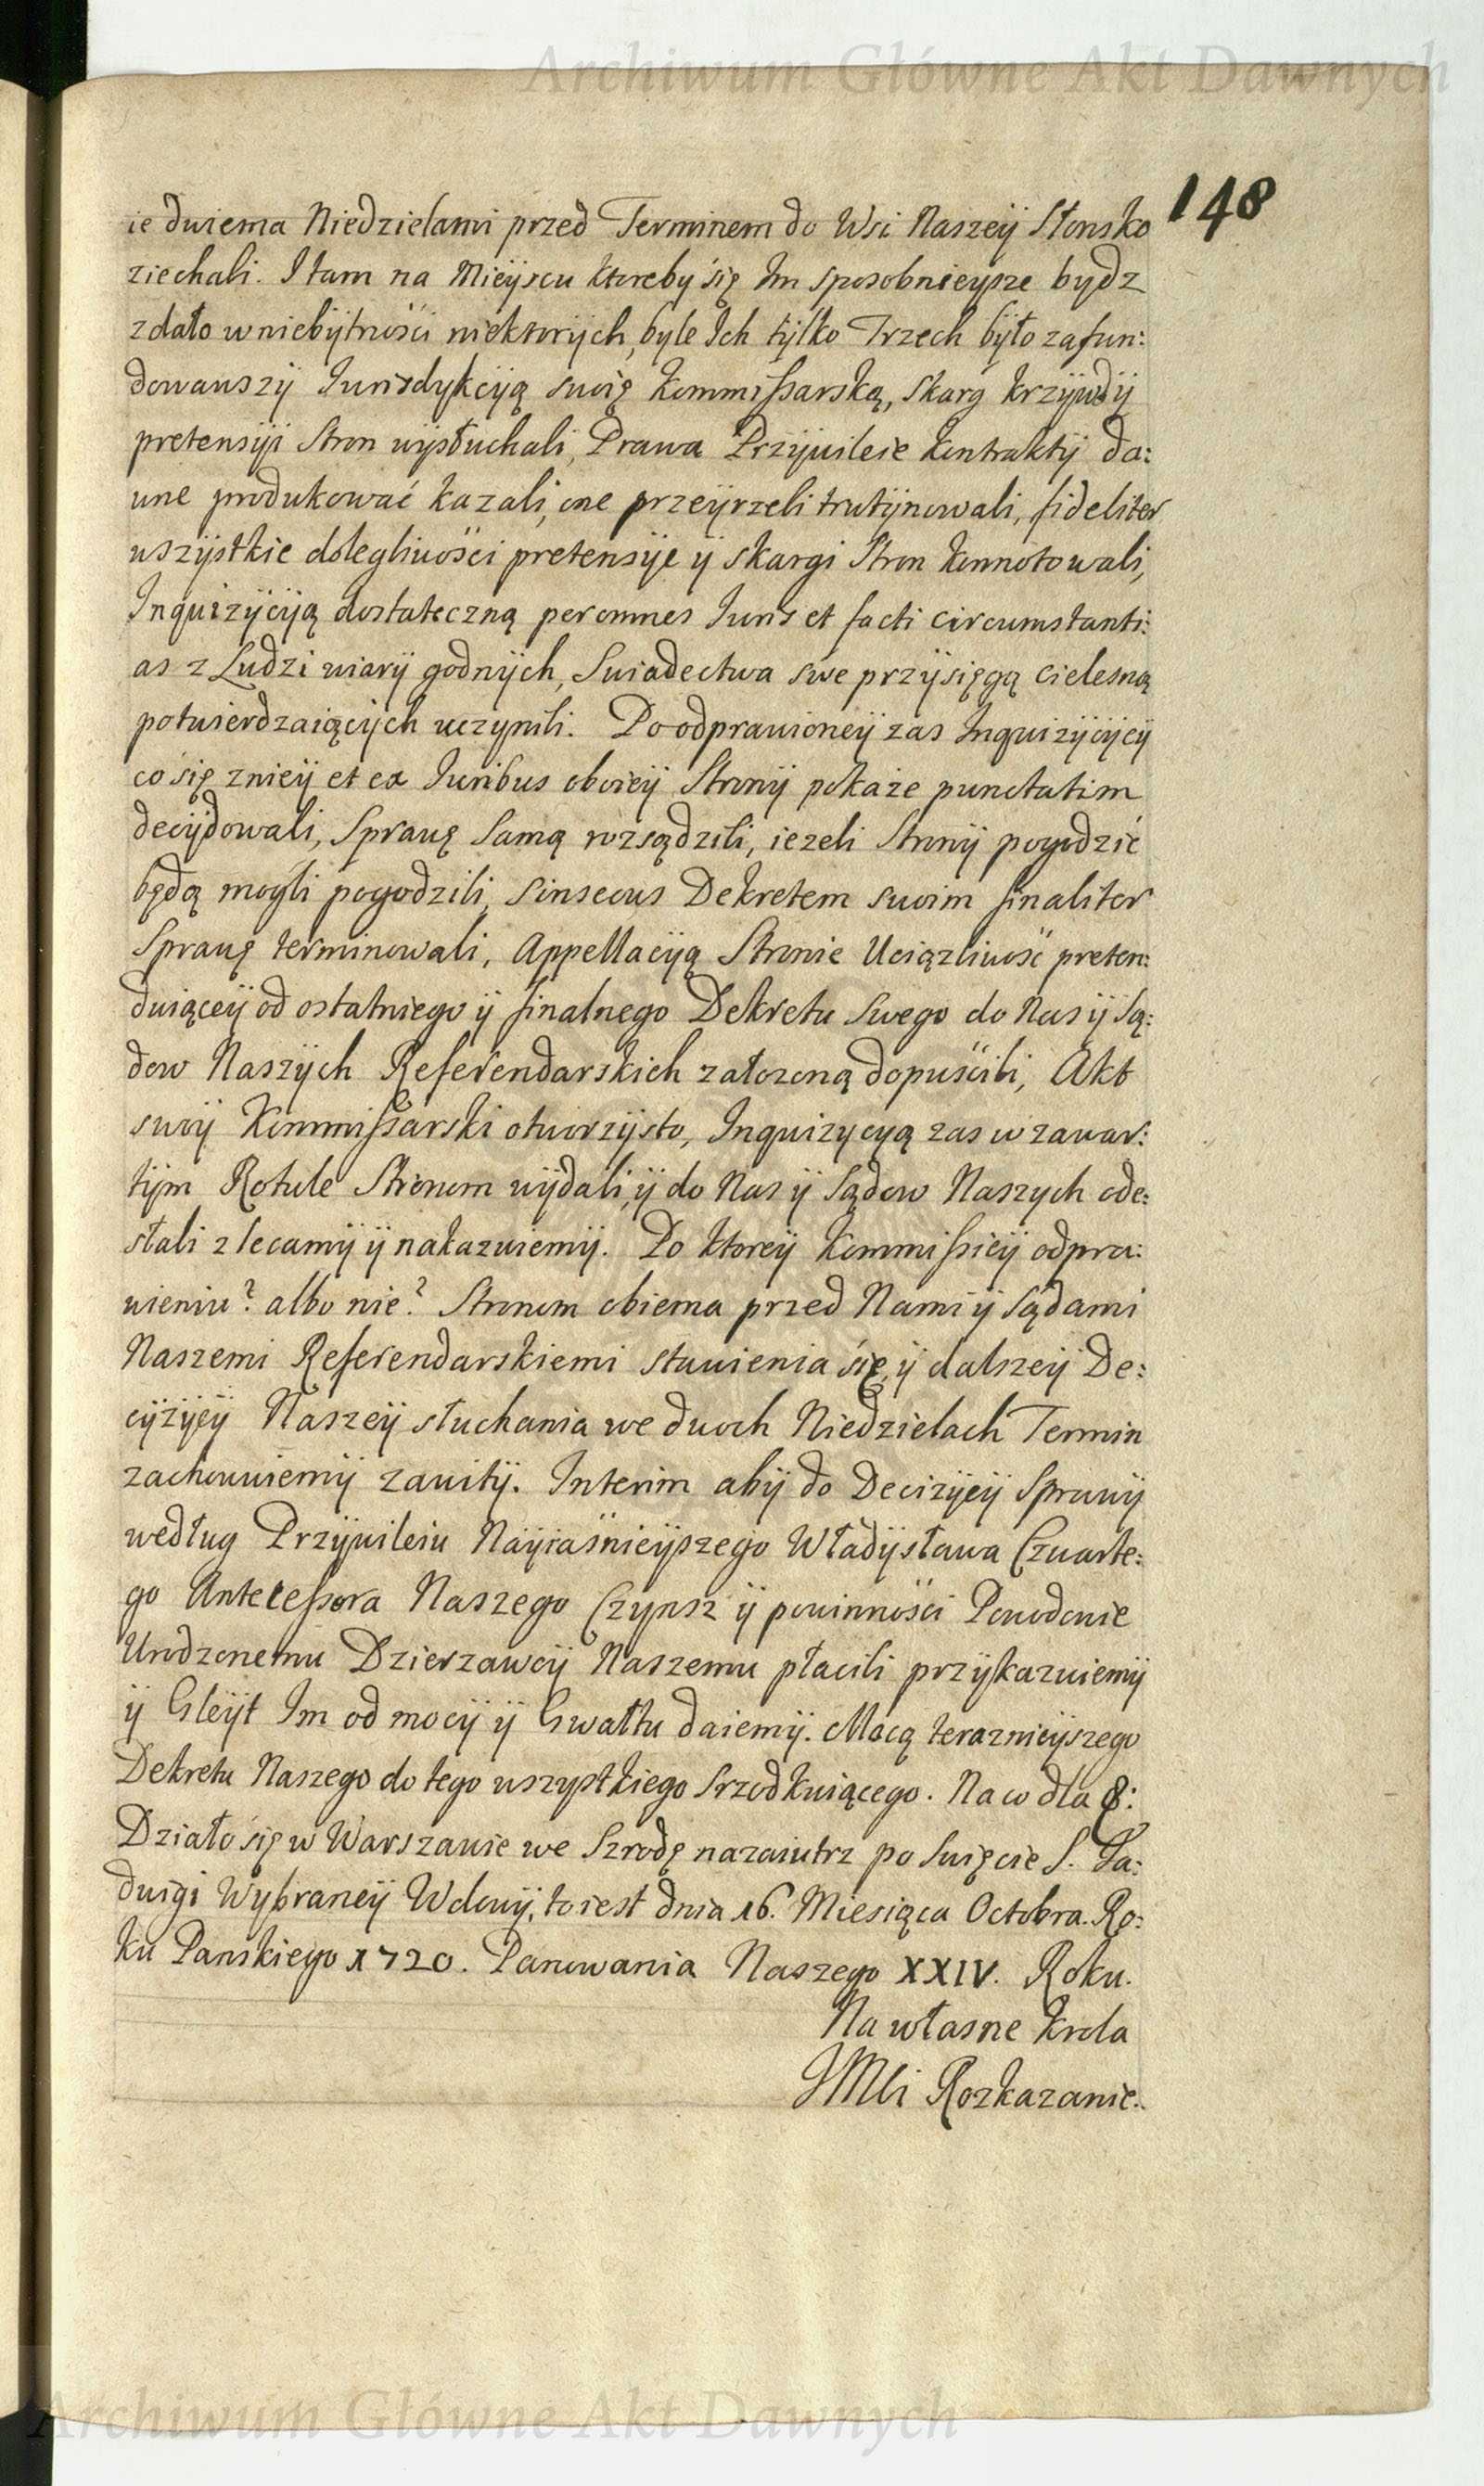 Archiwum Główne Akt Dawnych
148
ie dwiema Niedzielami przed Terminem do Wsi Naszeÿ Słonsko
ziechali. I tam na Mieÿscu ktoreby się Im sposobnieysze bydz
zdało w niebÿtnosci niektorÿch, byle Ich tÿlko Trzech bÿło zafun:
dowawszÿ Iurisdÿkcÿą swoię Kommissarską, Skarg krzÿwdÿ
pretensÿi Stron wÿsłuchali, Prawa Przÿwileie Kontraktÿ da:
wne produkować kazali, one przeÿrzeli trutÿnowali, fideliter
wszÿstkie dolegliwości pretensÿe ÿ skargi Stron konnotowali,
Inquizÿcÿą dostateczną per omnes Iuris et facti circumstanti:
as z Ludzi wiarÿ godnÿch, Swiadectwa swe przÿsięgą cielesną
potwierdzaiącÿch uczynili. Po odprawioneÿ zas Inquizÿcÿeÿ
co się znieÿ et ex Iuribus oboieÿ Stronÿ pokaze punctatim
decÿdowali, Sprawę Samą rozsądzili, iezeli Stronÿ pogodzić
będą mogli pogodzili, sinsecus Dekretem swoim finaliter
Sprawę terminowali, Appellacÿą Stronie Uciązliwość preten:
duiąceÿ od ostatniego ÿ finalnego Dekretu Swego do Nas ÿ Są:
dow Naszÿch Referendarskich załozoną dopuścili, Akt
swoÿ Kommissarski otworzÿsto, Inquizycyą zas w zawar:
tÿm Rotule Stronom wÿdali, ÿ do Nas ÿ Sądow Naszych ode:
słali zlecamÿ ÿ nakazuiemÿ. Po ktoreÿ Kommissieÿ odpra:
wieniu? albo nie? Stronom obiema przed Nami ÿ Sądami
Naszemi Referendarskiemi stawienia się, ÿ dalszeÿ De:
cÿzÿeÿ Naszeÿ słuchania we dwoch Niedzielach Termin
zachowuiemÿ zawitÿ. Interim abÿ do Decizÿeÿ Sprawÿ
według Przÿwileiu Naÿiaśnieÿszego Władÿsława Czwarte:
go Antecessora Naszego Czynsz ÿ powinności Powodowie
Urodzonemu Dzierzawcÿ Naszemu płacili przÿkazuiemÿ
ÿ Gleÿt Im od mocÿ ÿ Gwałtu daiemÿ. Mocą teraznieÿszego
Dekretu Naszego do tego wszystkiego Srzodkuiącego. Na co dla P:
Działo się w Warszawie we Szrodę nazaiutrz po Swięcie S. Ja:
dwigi Wybraneÿ Wdowÿ, to iest dnia 16. Miesiąca Octobra. Ro:
ku Panskiego 1720. Panowania Naszego XXIV. Roku.
Na własne Krola
JMCi Rozkazanie.
Archiwum Główne Akt Dawnych